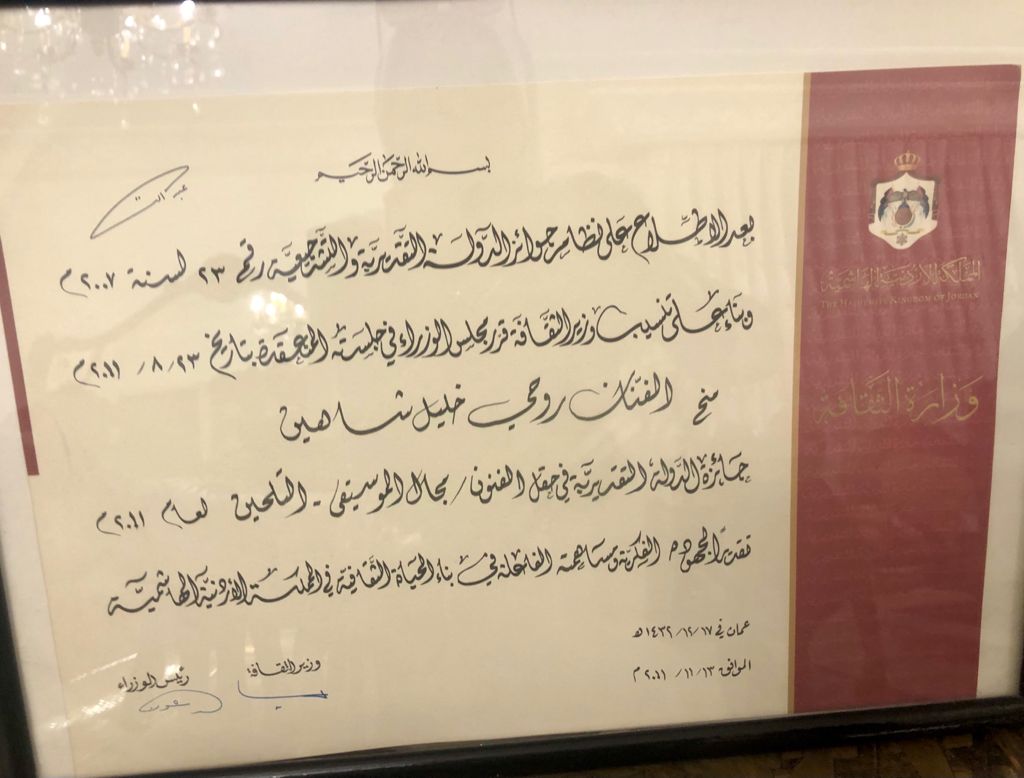 بسم الله الرحمن الرحيم
بعد الاطلاع على نظام جوائز الدولة التقديرية والتشجيعية رقم ٢٣ لسنة ٢٠٠٧م
وبناء على تنسيب وزير الثقافة قرر مجلس الوزراء في جلسته المنعقدة بتاريخ ٢٣/٨/٢٠١١م
منح الفنان روحي خليل شاهين
جائزة الدولة التقديرية في حقل الفنون/مجال الموسيقى - التلحين لعام ٢٠١١م
تقديرًا لجهوده الفكرية ومساهمته الفاعلة في بناء الحياة الثقافية في المملكة الأردنية الهاشمية
عمان في ١٤٣٢/١٢/١٧هـ
الموافق ٢٠١١/١١/١٣م
وزير الثقافة
رئيس الوزراء
المملكة الأردنية الهاشمية
THE HASHEMITE KINGDOM OF JORDAN
وزارة الثقافة